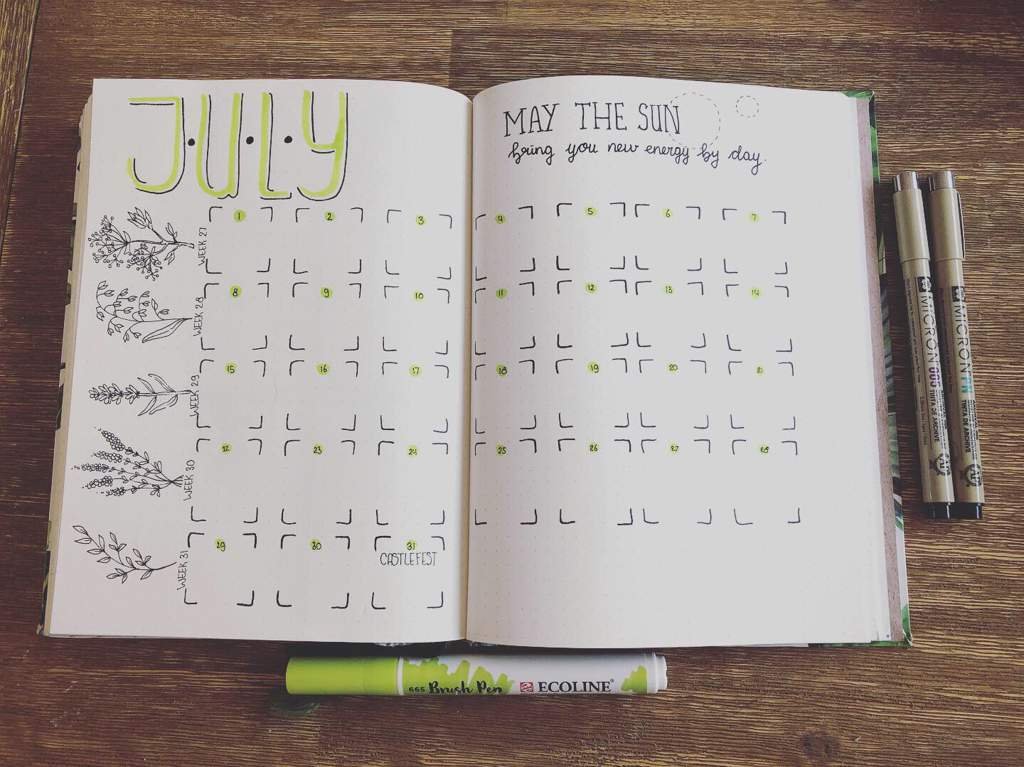 J·U·L·Y
MAY THE SUN
bring you new energy by day.
WEEK 27
1 2 3 4 5 6 7
WEEK 28
8 9 10 11 12 13 14
WEEK 29
15 16 17 18 19 20 21
WEEK 30
22 23 24 25 26 27 28
WEEK 31
29 30 31
CASTLEFEST
665 Brush Pen ECOLINE
MICRON 005
MICRON PN